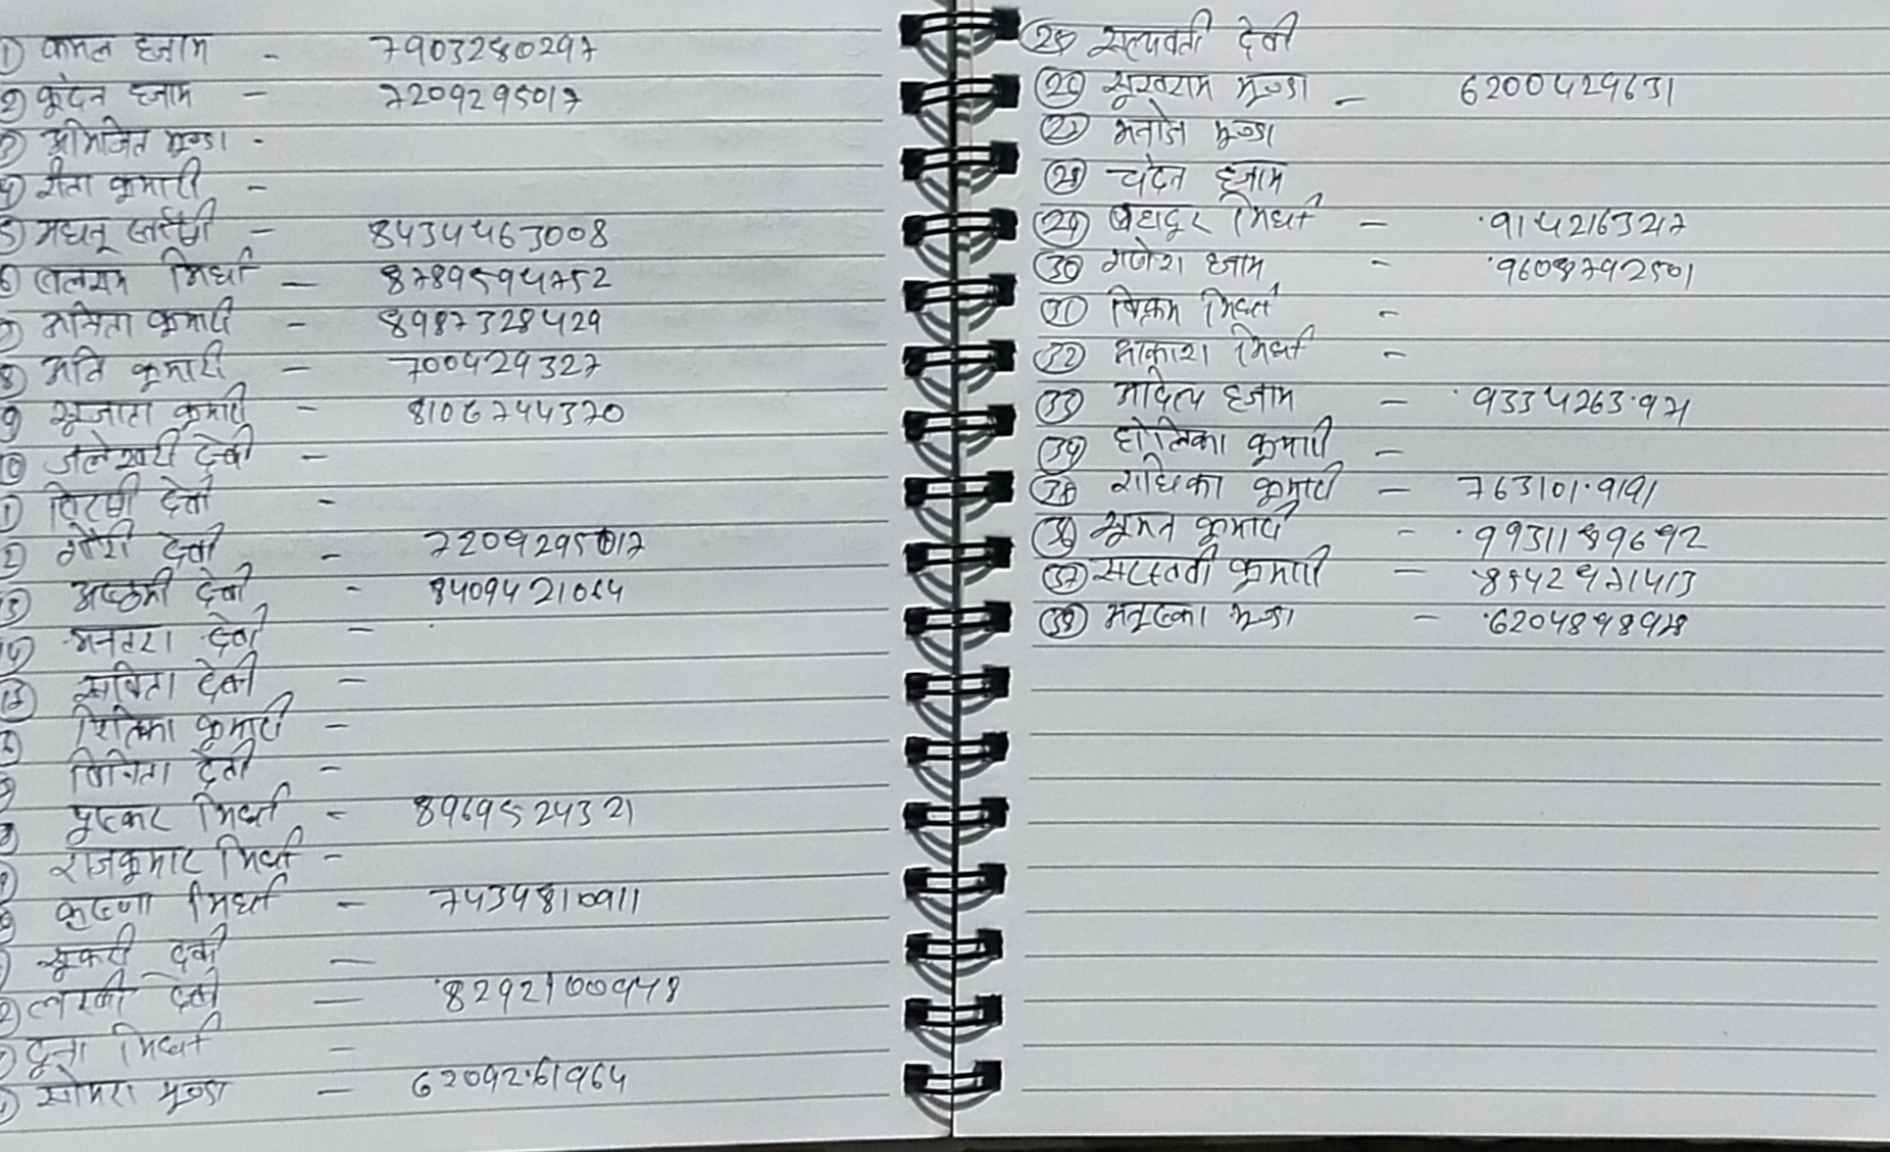 ① कमल हजाम - 7903280297
② कुंदन हजाम - 7209295017
③ अभिजित मुण्डा -
④ गीता कुमारी -
⑤ मधनू - 8434463008
⑥ बलराम मिर्धा - 8789594752
⑦ अनिता कुमारी - 8987328429
⑧ कुमारी - 700429327
⑨ सुजाता कुमारी - 8106744370
⑩ जलेश्वरी देवी -
देवी -
गौरी देवी - 7209295017
अष्ठमी देवी - 8409421064
देवी -
⑮ सबिता देवी -
रितिका कुमारी -
बिनिता देवी -
पुष्कर मिर्धा - 8969524321
राजकुमार मिर्धा -
कृष्णा मिर्धा - 7434810911
सुकरी देवी -
लखी देवी - 8292100948
मिर्धा -
सोमरा मुण्डा - 6209261964
㉕ सत्यवती देवी
㉖ सुखराम मुण्डा - 6200429631
㉗ मनोज मुण्डा
㉘ चंदन हजाम
㉙ बहादुर मिर्धा - 9142163217
㉚ गणेश हजाम - 9608792501
㉛ बिक्रम मिर्धा -
㉜ आकाश मिर्धा -
㉝ आदित्य हजाम - 9334263971
㉞ होलिका कुमारी -
㉟ राधिका कुमारी - 7631019191
㊱ सुमन कुमारी - 9931189692
㊲ सरस्वती कुमारी -
㊳ मुण्डा - 6204898928